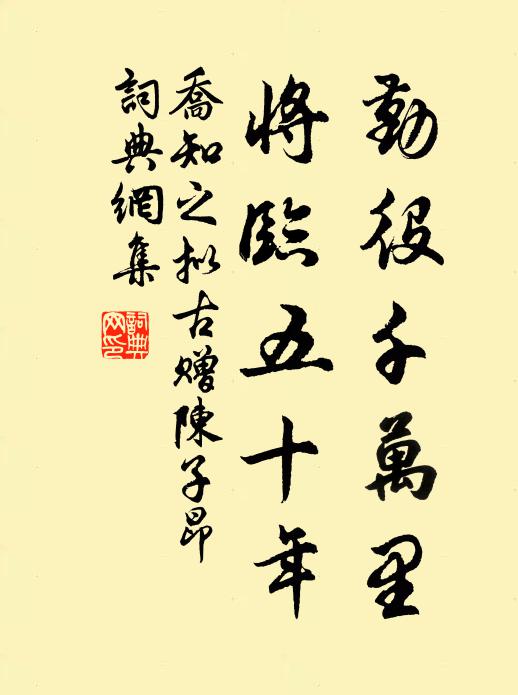 勤役千萬里
將臨五十年
喬知之拟古贈陳子昂
詞典網集
詞典
网印